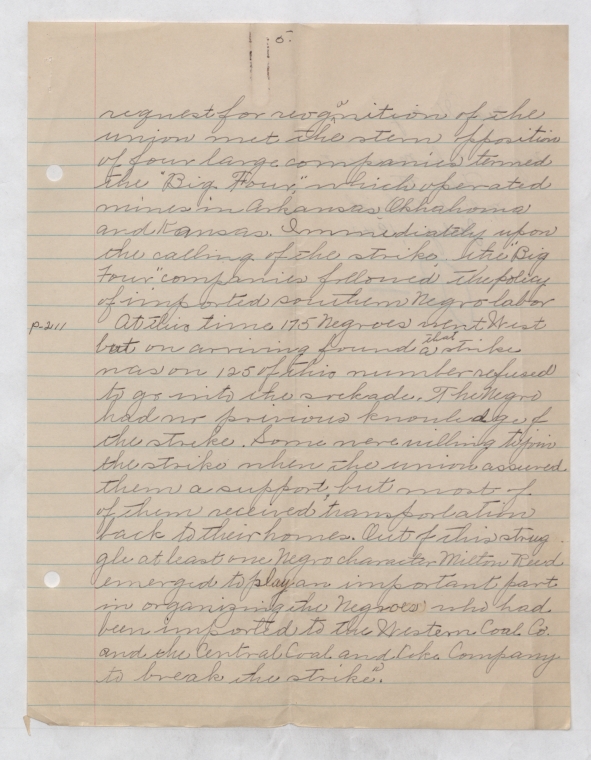 5.
request for recognition of the
union met the stern opposition
of four large companies termed
the "Big Four," which operated
mines in Arkansas, Okhahoma
and Kansas. Immediately upon
the calling of the strike, the "Big
Four" companies followed the policy
of imported southern Negro labor
p-211 At this time 175 Negroes went West
but on arriving found that a strike
was on 125 of this number refused
to go into the sockade. The Negro
had no privious knowledge of
the strike. Some were willing to join
the strike when the union assured
them a support, but most of
of them received transportation
back to their homes. Out of this strug
gle at least one Negro character Milton Reed
emerged to play an important part
in organizing the Negroes who had
been imported to the Western Coal Co.
and the Central Coal and Coke Company
to break the strike".